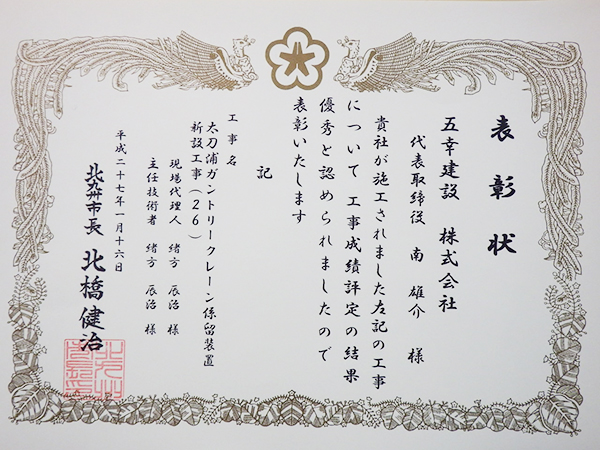 表彰状
五幸建設 株式会社
代表取締役 南 雄介 様
貴社が施工されました左記の工事
について 工事成績評定の結果
優秀と認められましたので
表彰いたします
記
工事名
太刀浦ガントリークレーン係留装置
新設工事(26)
現場代理人 緒方 辰治 様
主任技術者 緒方 辰治 様
平成二十七年一月十六日
北九州市長 北橋健治